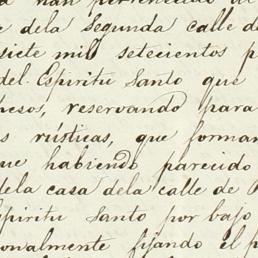 han pertenecido
dela Segunda calle de
siete mil setecientos p
del Espiritu Santo que
pesos, reservando para
s rústicas, que forman
ue habiendo parecido
dela casa dela calle de
spiritu Santo por bajo
onalmente fijando el p